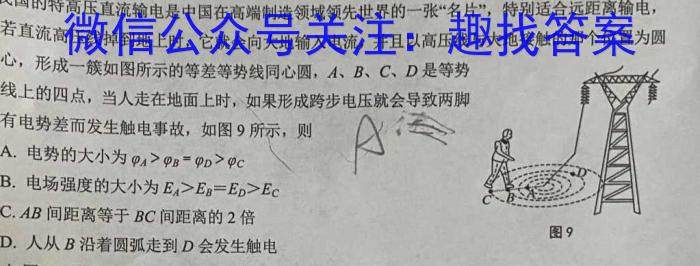 民国的特高压直流输电是中国在高端制造领域领先世界的一张“名片”，特别适合远距离输电，
若直流高压线掉到地上时，它就会向大地输入电流，并且以高压线与大地接触的那个位置为圆
微信公众号关注：趣找答案
心，形成一簇如图所示的等差等势线同心圆，A、B、C、D是等势
线上的四点，当人走在地面上时，如果形成跨步电压就会导致两脚
有电势差而发生触电事故，如图9所示，则
A. 电势的大小为φA＞φB＝φD＞φC
B. 电场强度的大小为EA＞EB＝ED＞EC
C. AB间距离等于BC间距离的2倍
D. 人从B沿着圆弧走到D会发生触电
C B A D
图9